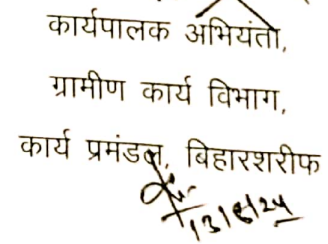 कार्यपालक अभियंता,
ग्रामीण कार्य विभाग,
कार्य प्रमंडल, बिहारशरीफ
13/6/24